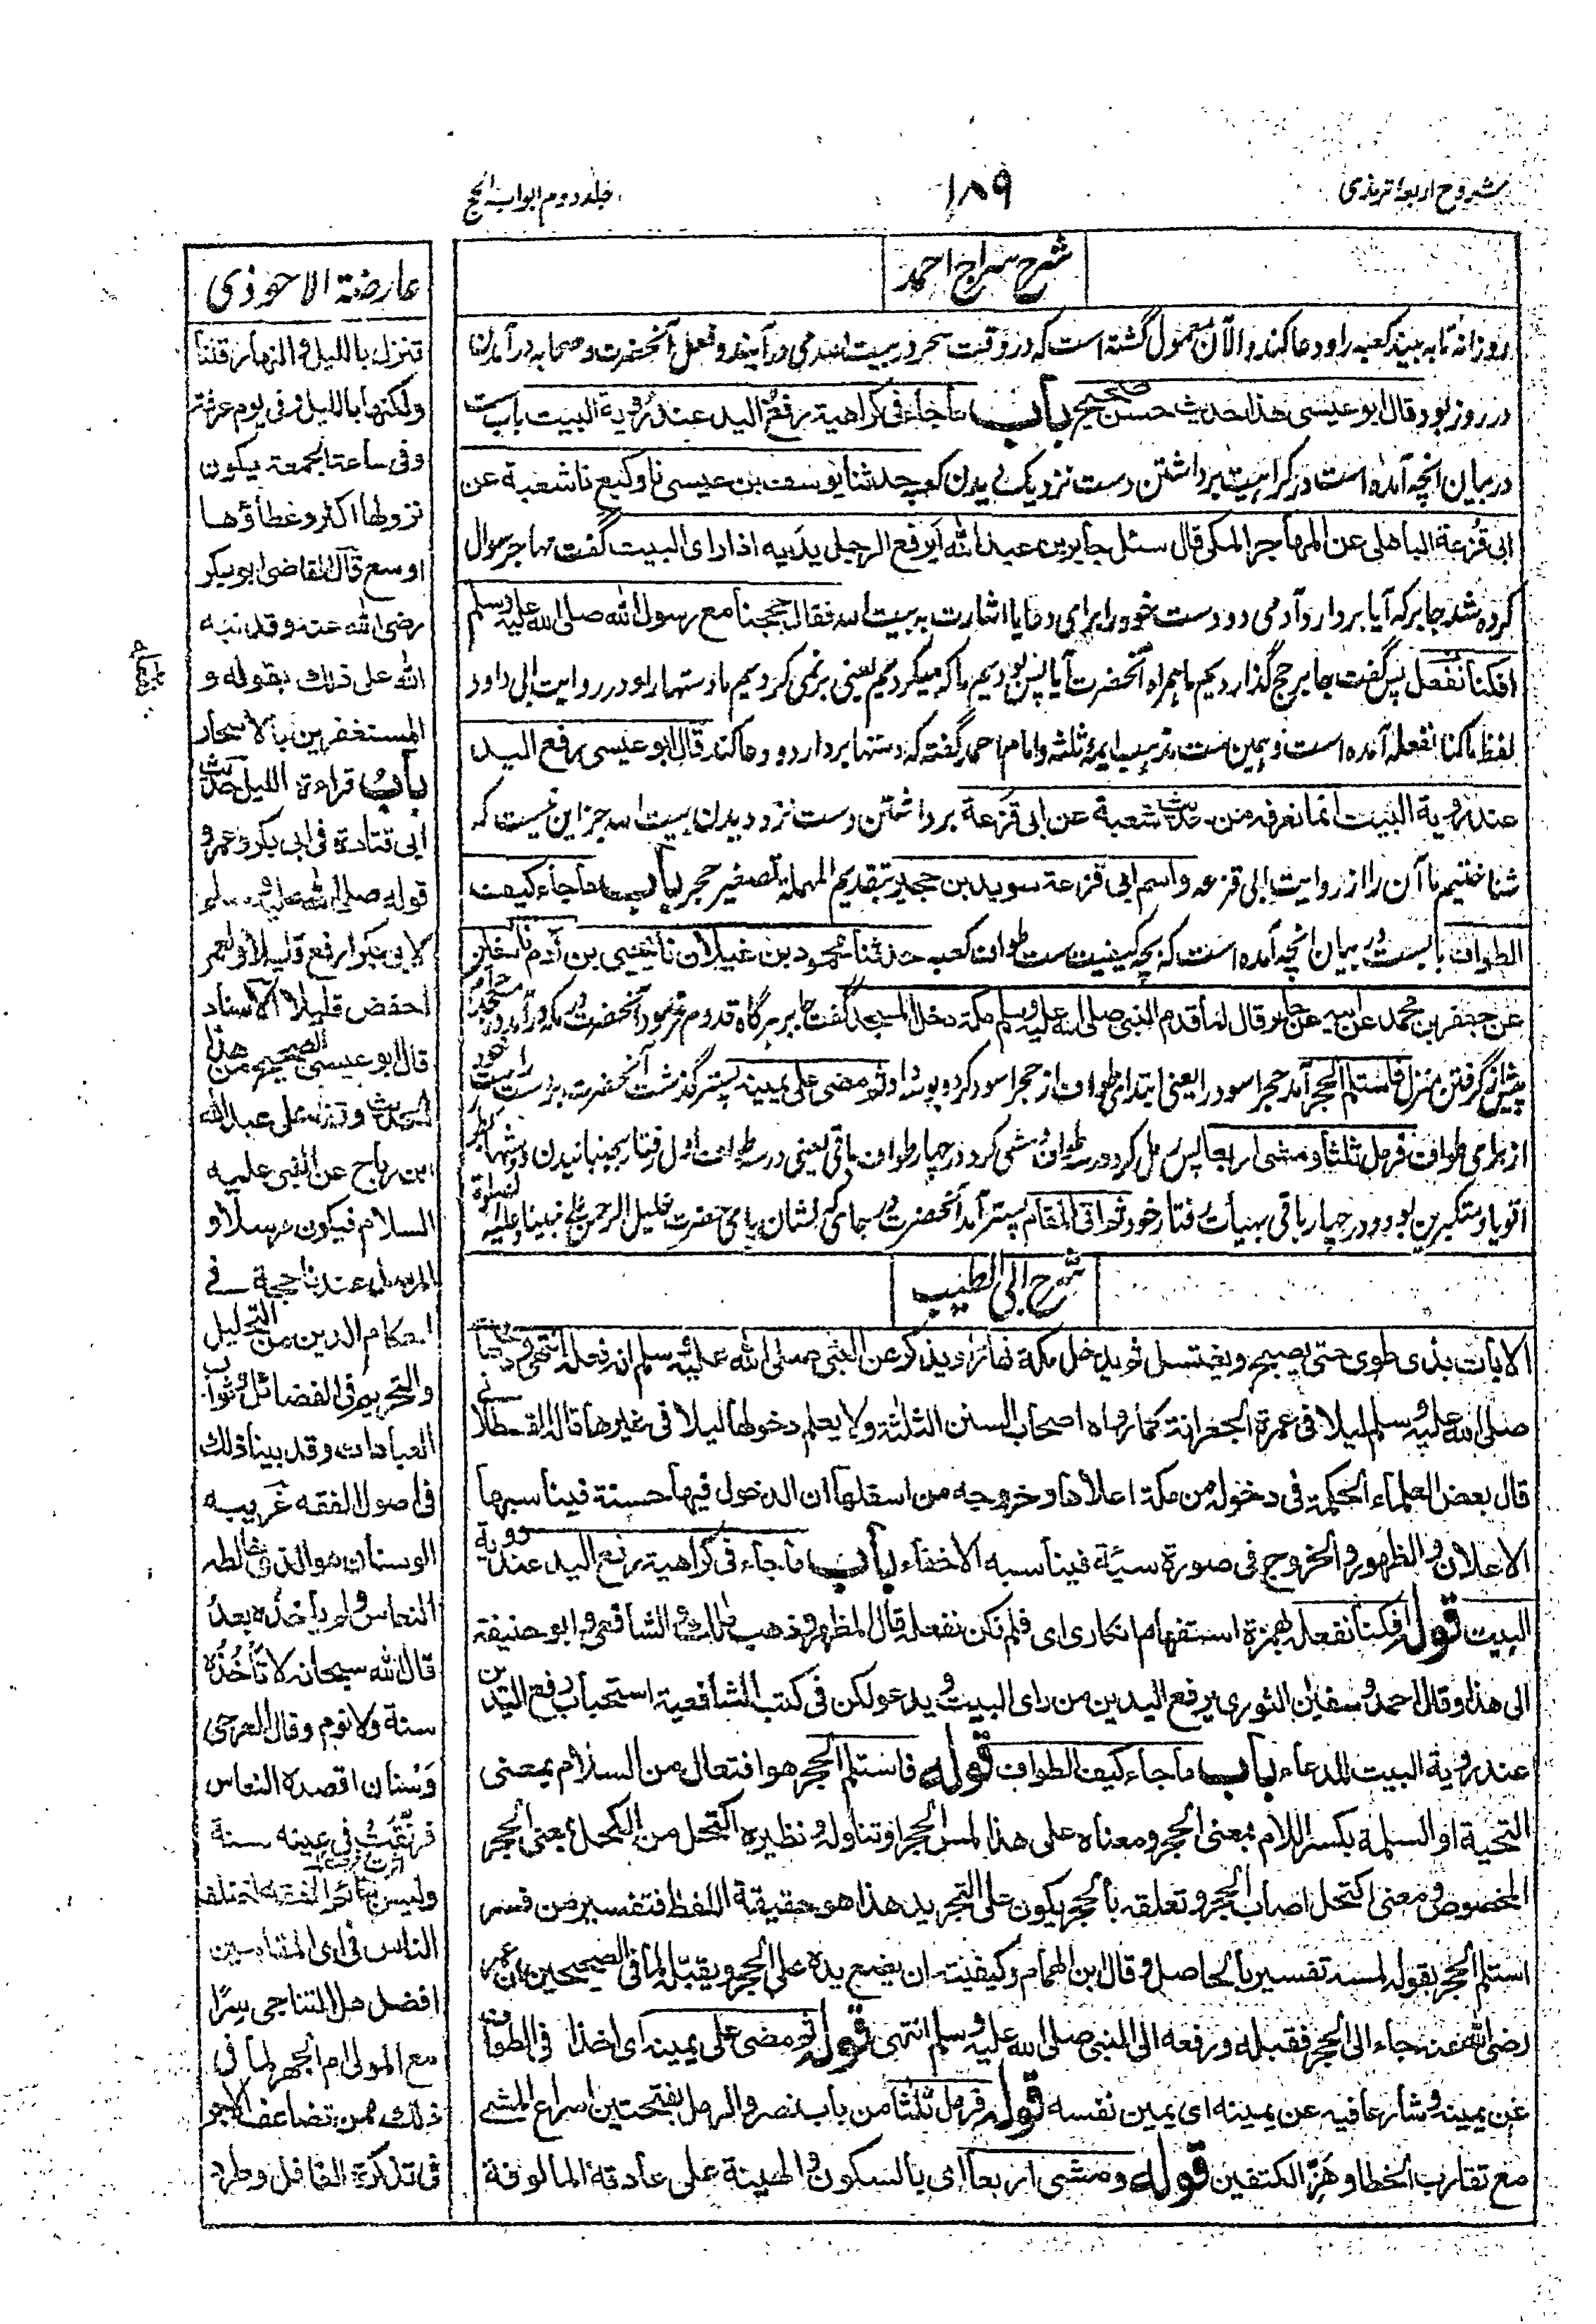 مشروح اربعه ترمذی
۱۸۹
جلد دوم ابواب الحج
شرح سراج احمد
روزانه تا به بیند کعبه را و دعا کند و الآن معمول گشته است که در وقت سحر در بیت الله می در آیند و فعل آنحضرت و صحابه در آمدن
در روز بود قال ابو عیسی هذا حدیث حسن صحیح باب ما جاء فی کراهیة رفع الید عند رؤیة البیت باب ست
در بیان انچه آمده است در کراهیت برداشتن دست نزدیک بدیدن کعبه حدثنا یوسف بن عیسی نا وکیع نا شعبة عن
ابی قزعة الباهلی عن المهاجر المکی قال سئل جابر بن عبد الله أیرفع الرجل یدیه اذا رای البیت گفت مهاجر سوال
کرده شد جابر که آیا بردارد آدمی دو دست خود را برای دعا یا اشارت به بیت الله فقال حججنا مع رسول الله صلی الله علیه وسلم
افکنا نفعل پس گفت جابر حج گذاردیم ما همراه آنحضرت آیا پس بودیم ما که میکردیم یعنی بر نمی کردیم ما دستها را و در روایت ابی داود
لفظ ما کنا نفعله آمده است و همین ست مذهب ایمهٔ ثلثه و امام احمد گفته که دستها بردارد و دعا کند قال ابو عیسی رفع الید
عند رؤیة البیت انما نعرفه من حدیث شعبة عن ابی قزعة برداشتن دست نزد دیدن بیت الله جز این نیست که
شناختیم ما آن را از روایت ابی قزعه واسم ابی قزعة سوید بن حجیر بتقدیم المهملة تصغیر حجر باب ما جاء کیف
الطواف بابست در بیان انچه آمده است که بچه کیفیت ست طواف کعبه حدثنا محمود بن غیلان نا یحیی بن آدم نا سفیان
عن جعفر بن محمد عن ابیه عن جابر قال لما قدم النبی صلی الله علیه وسلم مکة دخل المسجد گفت جابر هرگاه قدوم فرمود آنحضرت در مکه در آمد در مسجد حرام
پیش از گرفتن منزل فاستلم الحجر آمد حجر اسود را یعنی ابتدای طواف از حجر اسود کرد و بوسه داد ثم مضی علی یمینه پستر گذشت آنحضرت بر دست راست خود
از برای طواف فرمل ثلثا ومشی اربعا پس رمل کرد در سه طواف و مشی کرد در چهار طواف باقی یعنی در سه طواف اول رفتار بجنبانیدن دوشها
اقویا و متکبرین بود و در چهار باقی بهیأت رفتار خود ثم اتی المقام پستر آمد آنحضرت بجای که نشان پای حضرت خلیل الرحمن علی نبینا وعلیه الصلوة
شرح ابی الطیب
الا بات بذی طوی حتی یصبح ویغتسل ثم یدخل مکة نهارا ویذکر عن النبی صلی الله علیه وسلم انه فعله انتهی ودخلها
صلی الله علیه وسلم لیلا فی عمرة الجعرانة کما رواه اصحاب السنن الثلثة ولا یعلم دخولها لیلا فی غیرها قاله القسطلانی
قال بعض العلماء الحکمة فی دخوله من مکة اعلاها وخروجه من اسفلها ان الدخول فیها حسنة فیناسبها
الاعلان والظهور والخروج فی صورة سیئة فیناسبه الاخفاء باب ما جاء فی کراهیة رفع الید عند رویة
البیت قوله افکنا نفعله بهمزة استفهام انکاری ای فلم نکن نفعله قال المظهر وذهب مالک والشافعی وابو حنیفة
الی هذا وقال احمد وسفین الثوری یرفع الیدین من رای البیت ویدعو لکن فی کتب الشافعیة استحباب رفع الیدین
عند رویة البیت للدعاء باب ما جاء کیف الطواف قوله فاستلم الحجر هو افتعال من السلام بمعنی
التحیة او السلمة بکسر اللام بمعنی الحجر ومعناه علی هذا لمس الحجر او تناوله ونظیره اکتحل من الکحل بمعنی الحجر
المخصوص ومعنی اکتحل اصاب الحجر وتعلقه بالحجر یکون علی التجرید هذا هو حقیقة اللفظ فتفسیر من فسر
استلم الحجر بقوله لمسه تفسیر بالحاصل وقال ابن الهمام وکیفیته ان یضع یده علی الحجر ویقبله لما فی الصحیحین ان عمر
رضی الله عنه جاء الی الحجر فقبله ورفعه الی النبی صلی الله علیه وسلم انتهی قوله ثم مضی علی یمینه ای اخذا فی الطواف
عن یمینه وشارعا فیه عن یمینه ای یمین نفسه قوله فرمل ثلثا من باب نصر والرمل بفتحتین اسراع المشی
مع تقارب الخطا وهز الکتفین قوله ومشی اربعا ای بالسکون والهینة علی عادته المالوفة
عارضة الاحوذی
تنزل باللیل والنهار رقتنا
ولکنها باللیل وفی یوم عرفة
وفی ساعة الجمعة یکون
نزولها اکثر وغطاؤها
اوسع قال القاضی ابو بکر
رضی الله عنه وقد نبه
الله علی ذلک بقوله و
المستغفرین بالاسحار
باب قراءة اللیل حدیث
ابی قتادة فی ابی بکر وعمر و
قوله صلی الله علیه وسلم
لابی بکر ارفع قلیلا ولعمر
اخفض قلیلا الاسناد
قال ابو عیسی الصحیح من هذا
الحدیث وقفه علی عبد الله
ابن رباح عن النبی علیه
السلام فیکون مرسلا و
المرسل عندنا حجة فی
احکام الدین من التحلیل
والتحریم وفی الفضائل وثواب
العبادات وقد بینا ذلک
فی اصول الفقه غریبه
الوسنان هو الذی خالطه
النعاس ولم یأخذه بعدُ
قال الله سبحانه لا تأخذه
سنة ولا نوم وقال العرجی
وَسْنان اقصده النعاس
فرنّقت فی عینه سنة
ولیس بنائم الفقه اختلف
الناس فی ای المقامین
افضل هل التناجی سرّا
مع المولی ام الجهر لما فی
ذلک من تضاعف الاجر
فی تذکرة الغافل وطرد